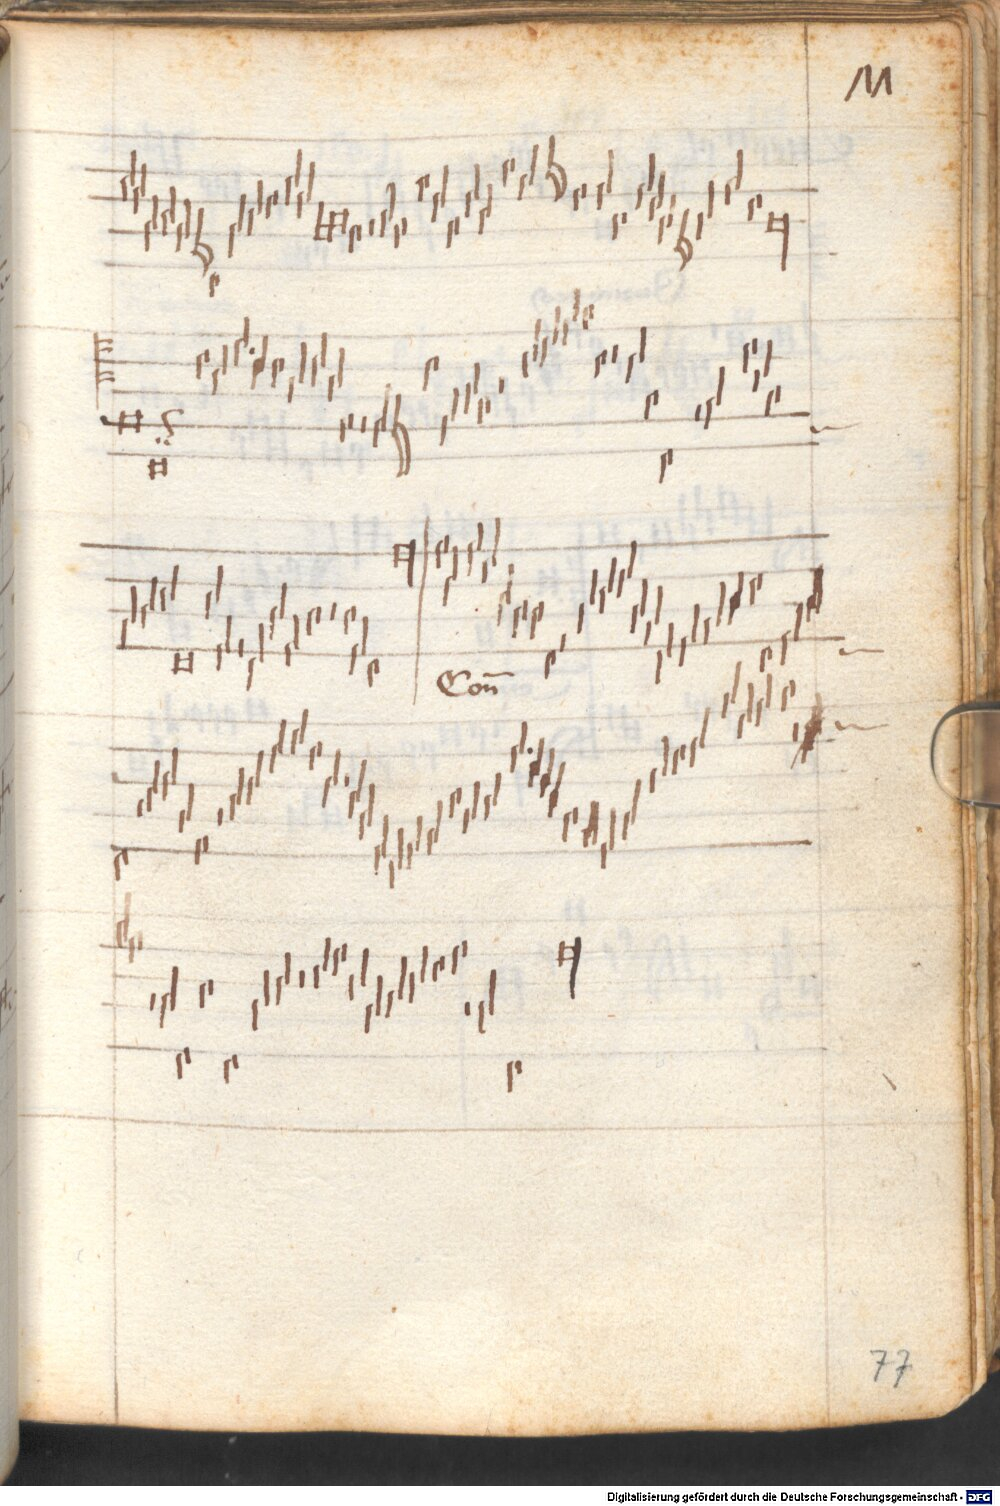 M
Con̄
77
Digitalisierung gefördert durch die Deutsche Forschungsgemeinschaft - DFG